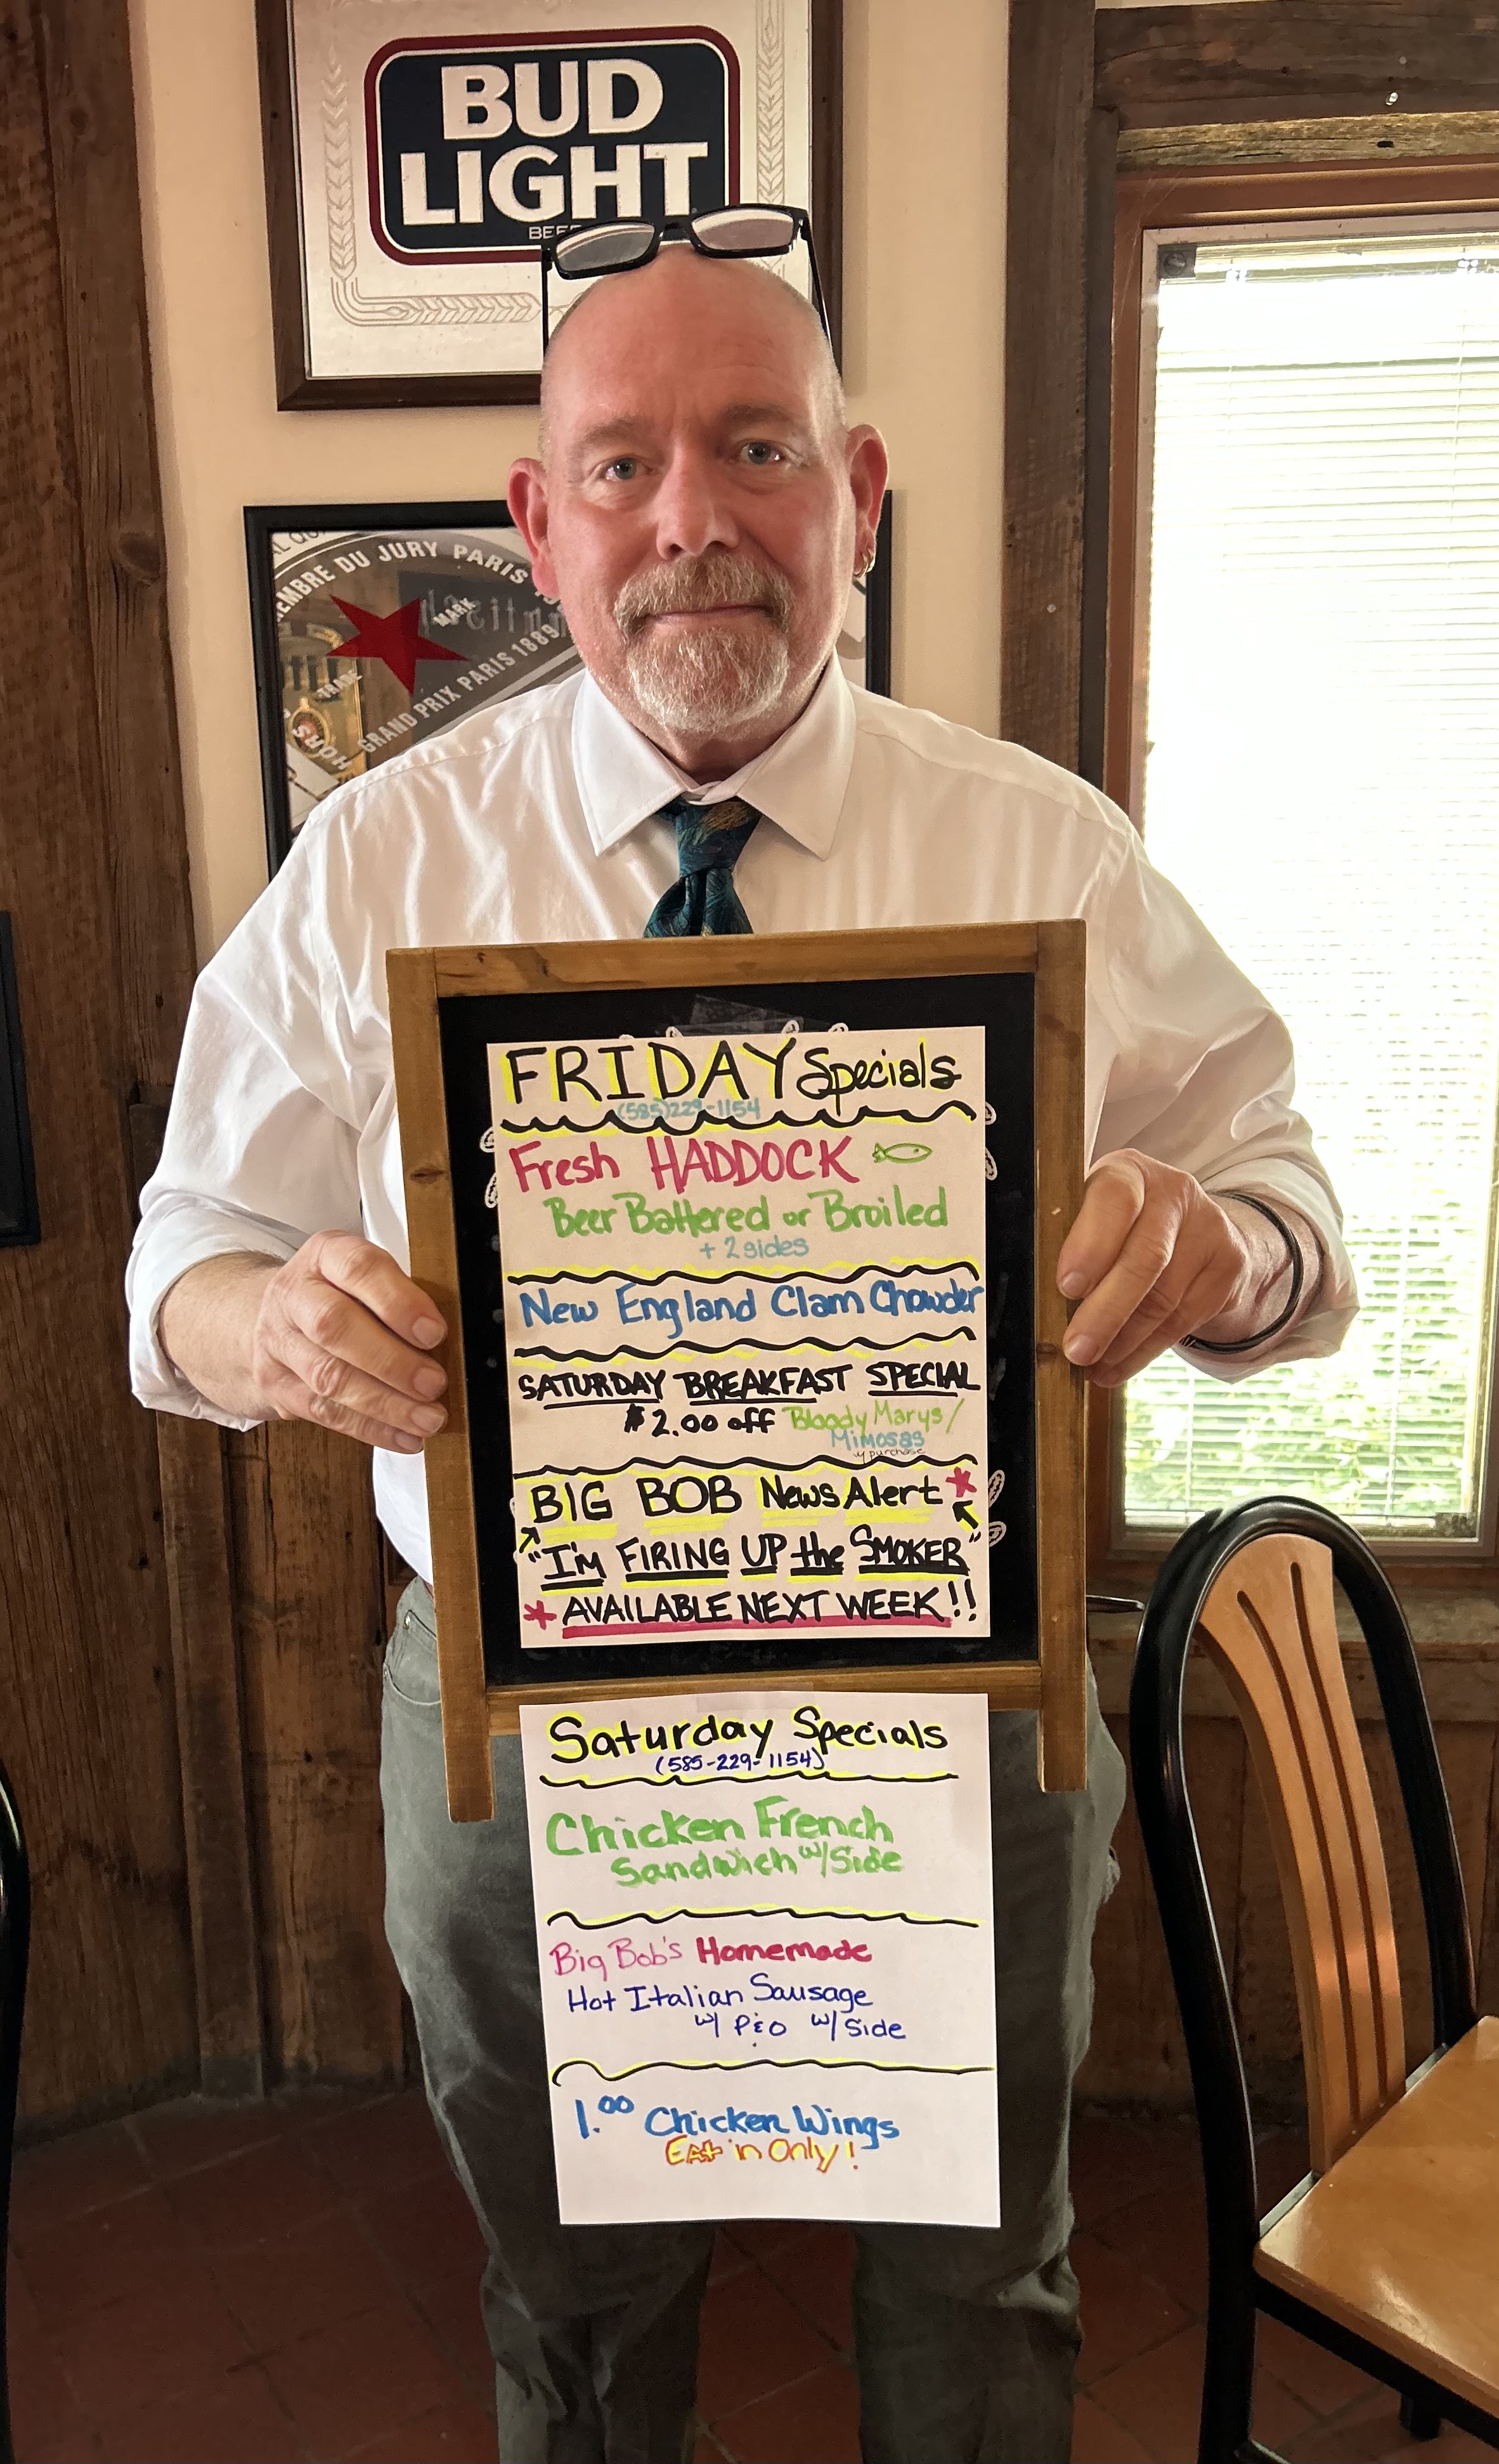 BUD
LIGHT
BEE
MEMBRE DU JURY PARIS
MARK
TRADE
GRAND PRIX PARIS 1889
HORS
FRIDAY Specials
(585)229-1154
Fresh HADDOCK
Beer Battered or Broiled
+ 2 sides
New England Clam Chowder
SATURDAY BREAKFAST SPECIAL
$2.00 off Bloody Marys/
Mimosas
w/ purchase
BIG BOB News Alert *
"I'M FIRING UP the SMOKER"
* AVAILABLE NEXT WEEK!!
Saturday Specials
(585-229-1154)
Chicken French
Sandwich w/ Side
Big Bob's Homemade
Hot Italian Sausage
w/ P&O w/ Side
1.00 Chicken Wings
Eat in Only!